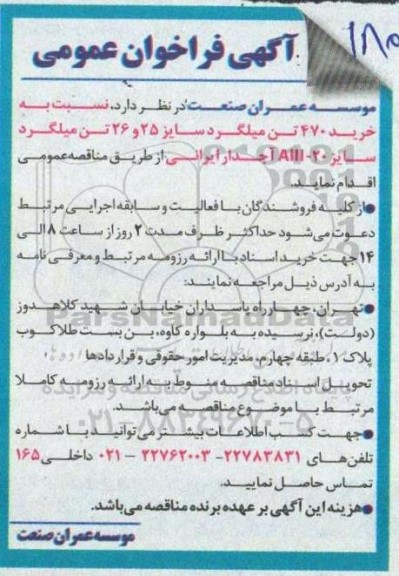 ۱۸۵
آگهی فراخوان عمومی
موسسه عمران صنعت در نظر دارد، نسبت به
خرید ۴۷۰ تن میلگرد سایز ۲۵ و ۲۶ تن میلگرد
سایز ۲۰-AIII آجدار ایرانی از طریق مناقصه عمومی
اقدام نماید.
●از کلیه فروشندگان با فعالیت و سابقه اجرایی مرتبط
دعوت می‌شود حداکثر ظرف مدت ۲ روز از ساعت ۸ الی
۱۴ جهت خرید اسناد با ارائه رزومه مرتبط و معرفی نامه
به آدرس ذیل مراجعه نمایند:
●تهران، چهارراه پاسداران خیابان شهید کلاهدوز
(دولت)، نرسیده به بلوار کاوه، بن بست طلاکوب
پلاک ۱، طبقه چهارم، مدیریت امور حقوقی و قراردادها
تحویل اسناد مناقصه منوط به ارائه رزومه کاملا
مرتبط با موضوع مناقصه می‌باشد.
●جهت کسب اطلاعات بیشتر می‌توانید با شماره
تلفن‌های ۲۲۷۸۳۸۳۱- ۲۲۷۶۲۰۰۳ – ۰۲۱ داخلی ۱۶۵
تماس حاصل نمایید.
●هزینه این آگهی بر عهده برنده مناقصه می‌باشد.
موسسه عمران صنعت
ParsNamadData